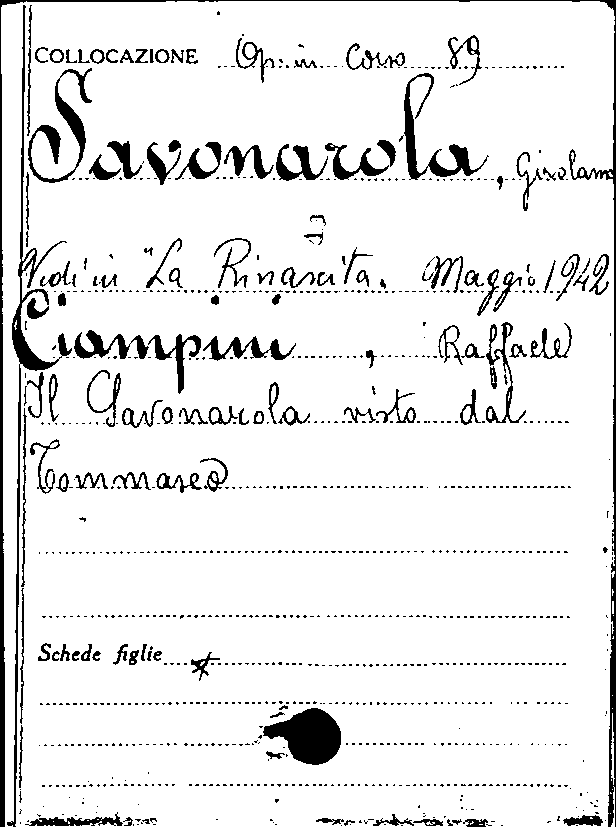 COLLOCAZIONE Op. in Corso 89
Savonarola, Girolamo
Vedi in "La Rinascita. Maggio 1942
Ciampini, Raffaele
Il Savonarola visto dal
Tommaseo
Schede figlie